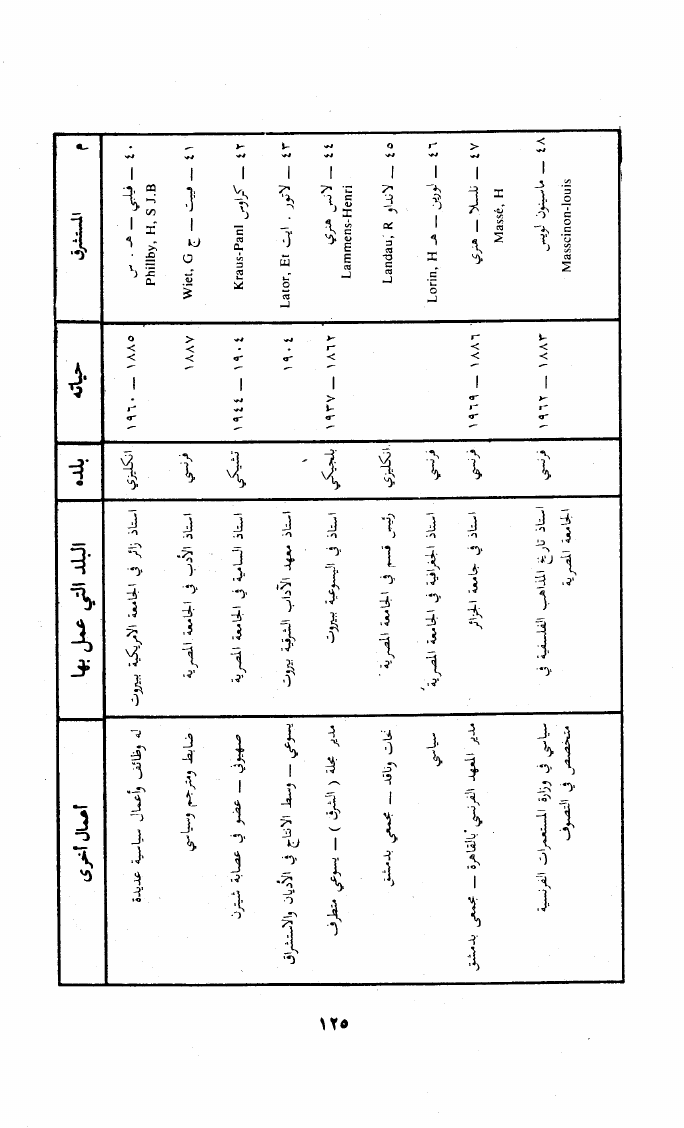 م المستشرق | حياته | بلده | البلد التي عمل بها | أعمال أخرى
٤٠ — فيلبي — هـ . س Phillby, H, S J.B | ١٨٨٥ — ١٩٦٠ | انكليزي | استاذ زائر في الجامعة الامريكية ببيروت | له وظائف وأعمال سياسية عديدة
٤١ — فييت — ج Wiet, G | ١٨٨٧ | فرنسي | استاذ الأدب في الجامعة المصرية | ضابط ومترجم وسياسي
٤٢ — كراوس Kraus-Panl | ١٩٠٤ — ١٩٤٤ | تشيكي | استاذ السامية في الجامعة المصرية | صهيوني — عضو في عصابة شيترن
٤٣ — لاتور . ايت Lator, Et | ١٩٠٤ | استاذ معهد الآداب الشرقية ببيروت | يسوعي — وسط الانتاج في الأديان والاستشراق
٤٤ — لانس هنري Lammens-Henri | ١٨٦٢ — ١٩٣٧ | بلجيكي | استاذ في اليسوعية ببيروت | مدير مجلة ( الشرق ) — يسوعي متطرف
٤٥ — لانداو Landau; R | انكليزي | رئيس قسم في الجامعة المصرية | نحات وناقد — مجمعي بدمشق
٤٦ — لورين — هـ Lorin, H | فرنسي | استاذ الجغرافية في الجامعة المصرية | سياسي
٤٧ — — هنري Massé, H | ١٨٨٦ — ١٩٦٩ | فرنسي | استاذ في جامعة الجزائر | مدير المعهد الفرنسي بالقاهرة — مجمعي بدمشق
٤٨ — ماسينون لويس Masscinon-louis | ١٨٨٣ — ١٩٦٢ | فرنسي | استاذ تاريخ المذاهب الفلسفية في | سياسي في وزارة المستعمرات الفرنسية
الجامعة المصرية | متخصص في التصوف
١٢٥